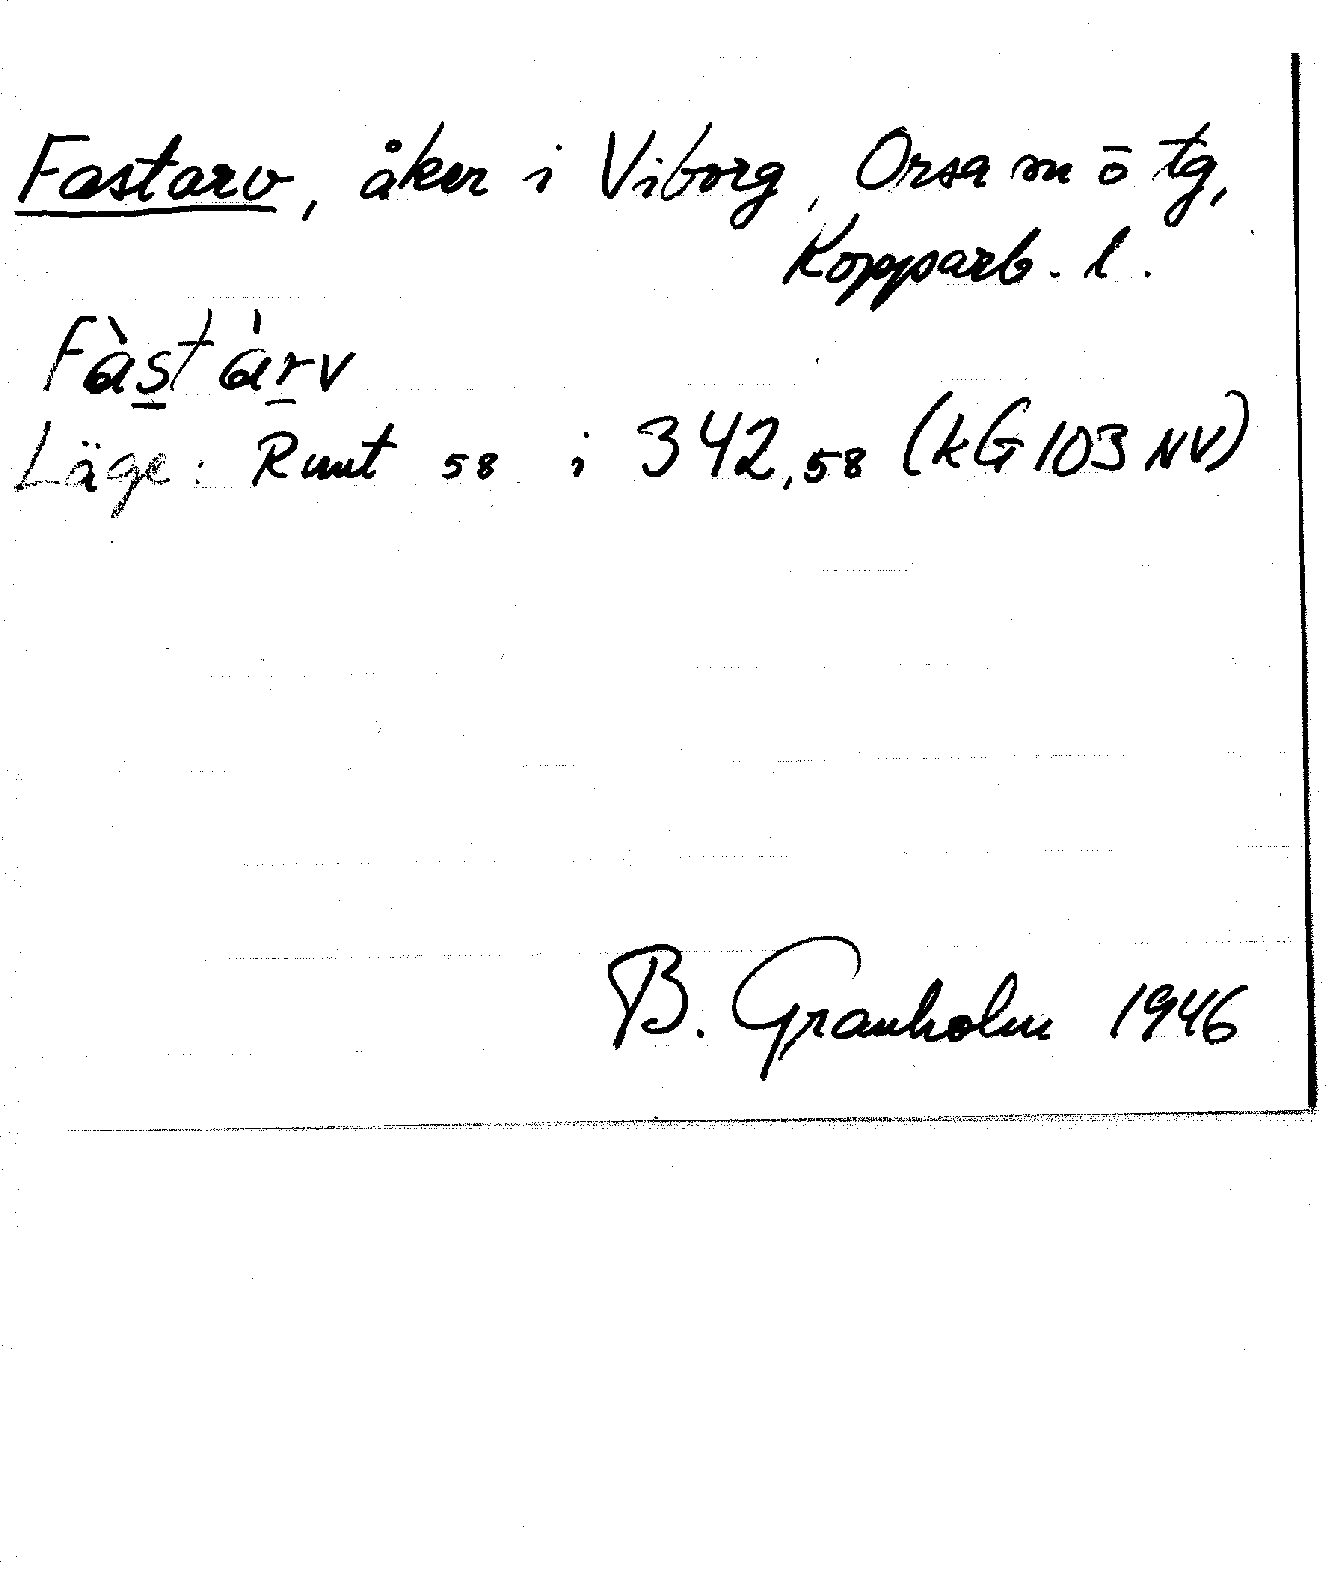 Fastarv, åker i Viborg, Orsa sn ō tg,
Kopparb. l.
Fàstàrv
Läge: Runt 58 i 342,58 (kG 103 NV)
B. Granholm 1946